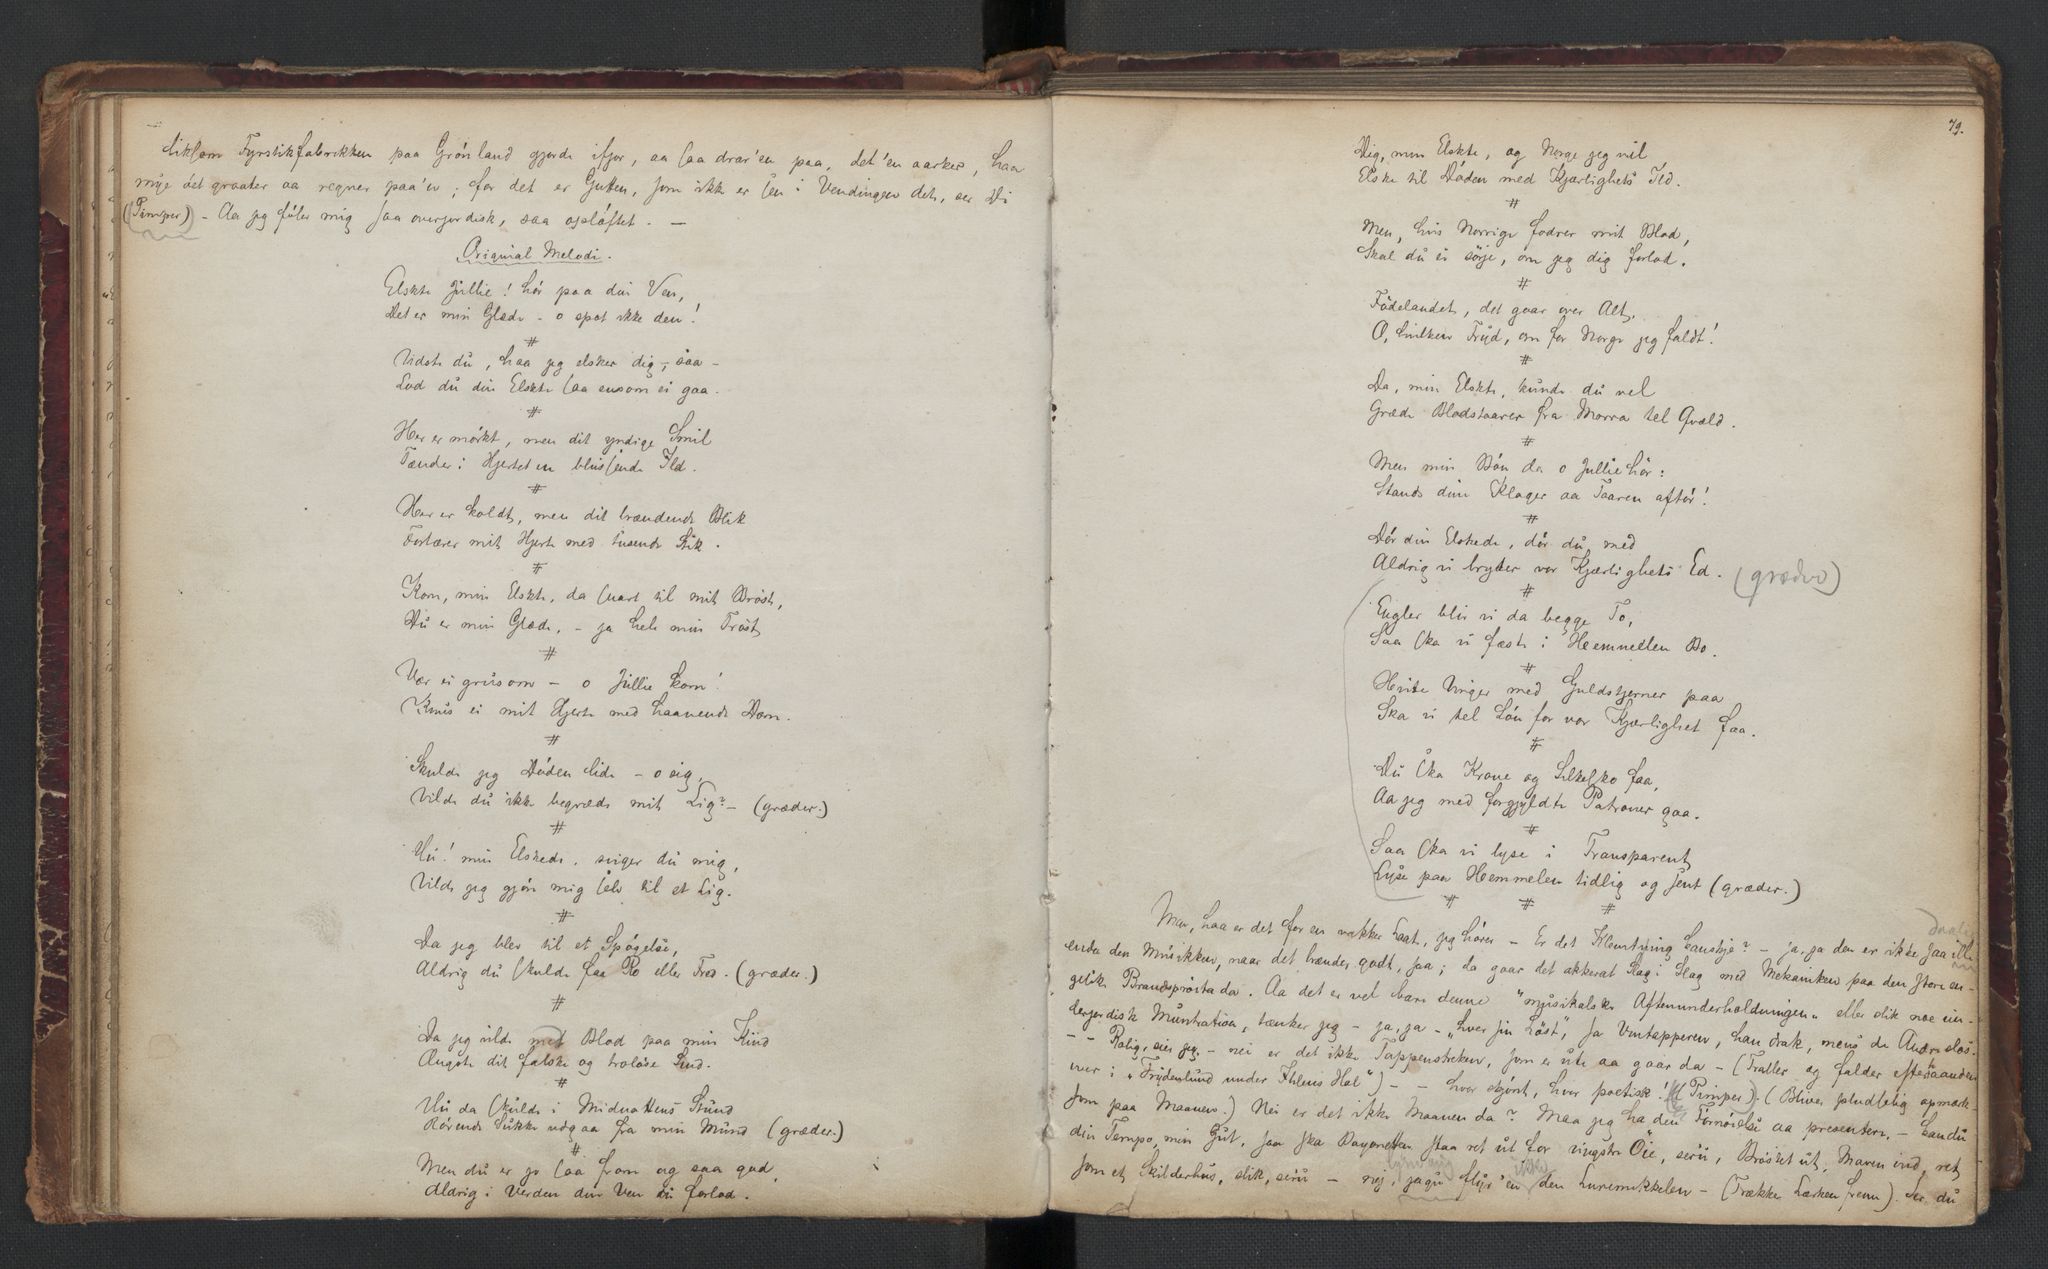 liksom Fyrstikfabrikken paa Grønland gjorde ifjor, aa saa drar'en paa, det'en aarker, haa
mye det graater aa regner paa'n; for det er Gutten, som ikke er sen i Vendingen det, ser Di
(Pimper) - Aa jeg føler mig saa overjordisk, saa opløftet. -
Original Melodi.
Elskte Jullie! hør paa din Ven,
Det er min Glæde - o spot ikke den!
#
Vidste du, haa jeg elsker dig, saa -
Lod du din Elskte saa ensom ei gaa.
#
Her er mørkt, men dit yndige Smil
Tænder i Hjertet en blussende Ild.
#
Her er koldt, men dit brændende Blik
Fortærer mit Hjerte med tusende Stik.
#
Kom, min Elskte, da snart til mit Bryst,
Du er min Glæde, - ja hele min Trøst
#
Vær ei grusom - o Jullie kom!
Knus ei mit Hjerte med haanende Dom.
#
Skulde jeg Døden lide - o sig,
Vilde du ikke begræde mit Lig? - (græder.)
#
Hu! min Elskede, sviger du mig,
Vilde jeg gjøre mig selv til et Lig.
#
Da jeg blev til et Spøgelse,
Aldrig du skulde faa Ro eller Fred. (græder.)
#
Da jeg vilde med Blod paa min Kind
Ængste dit falske og troløse Sind.
#
Hu da skulde i Midnattens Stund
Rørende Sukke udgaa fra min Mund (græder.)
#
Men du er jo saa from og saa god,
Aldrig i Verden din Ven du forlod.
79.
Dig, min Elskte, og Norge jeg vil
Elske til Døden med Kjærlighets Ild.
#
Men, hvis Norrige fodrer mit Blod,
Skal du ei sørje, om jeg dig forlod.
#
Fødelandet, det gaar over Alt,
O, hvilken Fryd, om for Norge jeg faldt!
#
Da, min Elskte, kunde du vel
Græde Blodstaarer fra Morra tel Qvæld.
#
Men min Bøn da o Jullie hør:
Stands dine Klager aa Taaren aftør!
#
Dør din Elskede, dør du med
Aldrig vi bryter vor Kjærlighets Ed. (græder)
#
Engler blir vi da begge To,
Saa ska vi fæste i Hemmellen Bo.
#
Hvite Vinger med Guldstjerner paa
Ska vi tel Løn for vor Kjærlighet faa.
#
Du ska Krone og Silkesko faa,
Aa jeg med forgyldte Patroner gaa.
#
Saa ska vi lyse i Transparent
Lyse paa Hemmelen tidlig og sent (græder.)
# # #
Men, haa er det for en vakker Laat, jeg hører - Er det Klemtning kanskje? - ja, ja den er ikke saa ille
enda den Musikken, naar det brænder godt, saa; da gaar det akkerat Slag i Slag med Mekaniken paa den store en-
gelske Brandsprøita da. Aa det er vel bare denne "musikalske Aftenunderholdningen" eller slik noe un-
derjordisk Muntration, tænker jeg - ja, ja - "hver sin Løst", sa Vintapperen, han drak, mens de Andre slos.
- - Rolig, sier jeg, - nei er det ikke Tappenstreken, som er ute aa gaar da - (Traller og falder efterhaanden
over i "Frydenlund under Ihlens Hæl") - - hvor skjønt, hvor poetisk! (Pimper). (Bliver pludselig opmærk-
som paa Maanen.) Nei er det ikke Maanen da? Maa jeg ha den Fornøielse aa presentere, - kan du
din Tempo, min Gut, saa ska Bayonetten staa ret ut for vingstre Øie, seru, Brøstet ut, Maven ind, ret
som et Skilderhus, slik, seru - nej, jagu flyr'en den Luremikkelen - (Trækker Lærken frem). Ser du